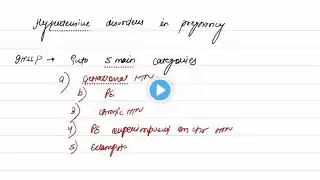 Hypertensive disorders in pregnancy
→ Into 5 main categories
a) Gestational HTN
b) PE
3) chronic HTN
4) PE superimposed on chr HTN
5)